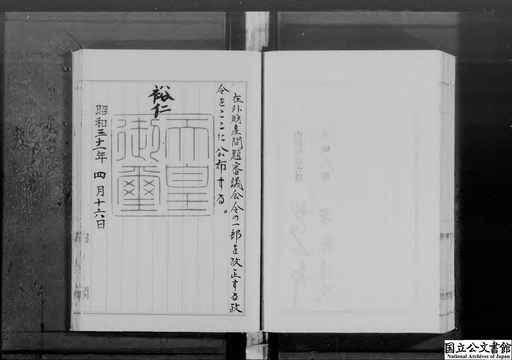 在外財産問題審議会令の一部を改正する政
令をここに公布する。
裕仁
天皇
御璽
昭和三十一年四月十六日
国立公文書館
National Archives of Japan